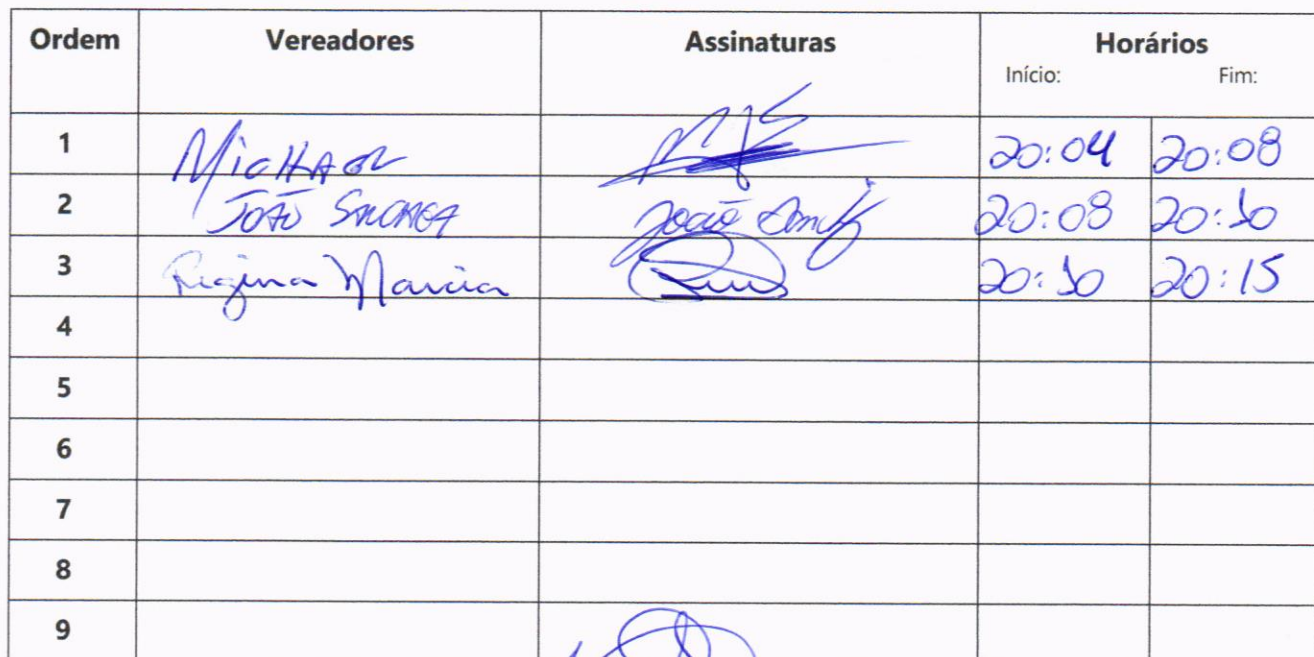 Ordem Vereadores Assinaturas Horários
Início: Fim:
1 Michael 20:04 20:08
2 João 20:08 20:10
3 Regina Marcia 20:10 20:15
4
5
6
7
8
9